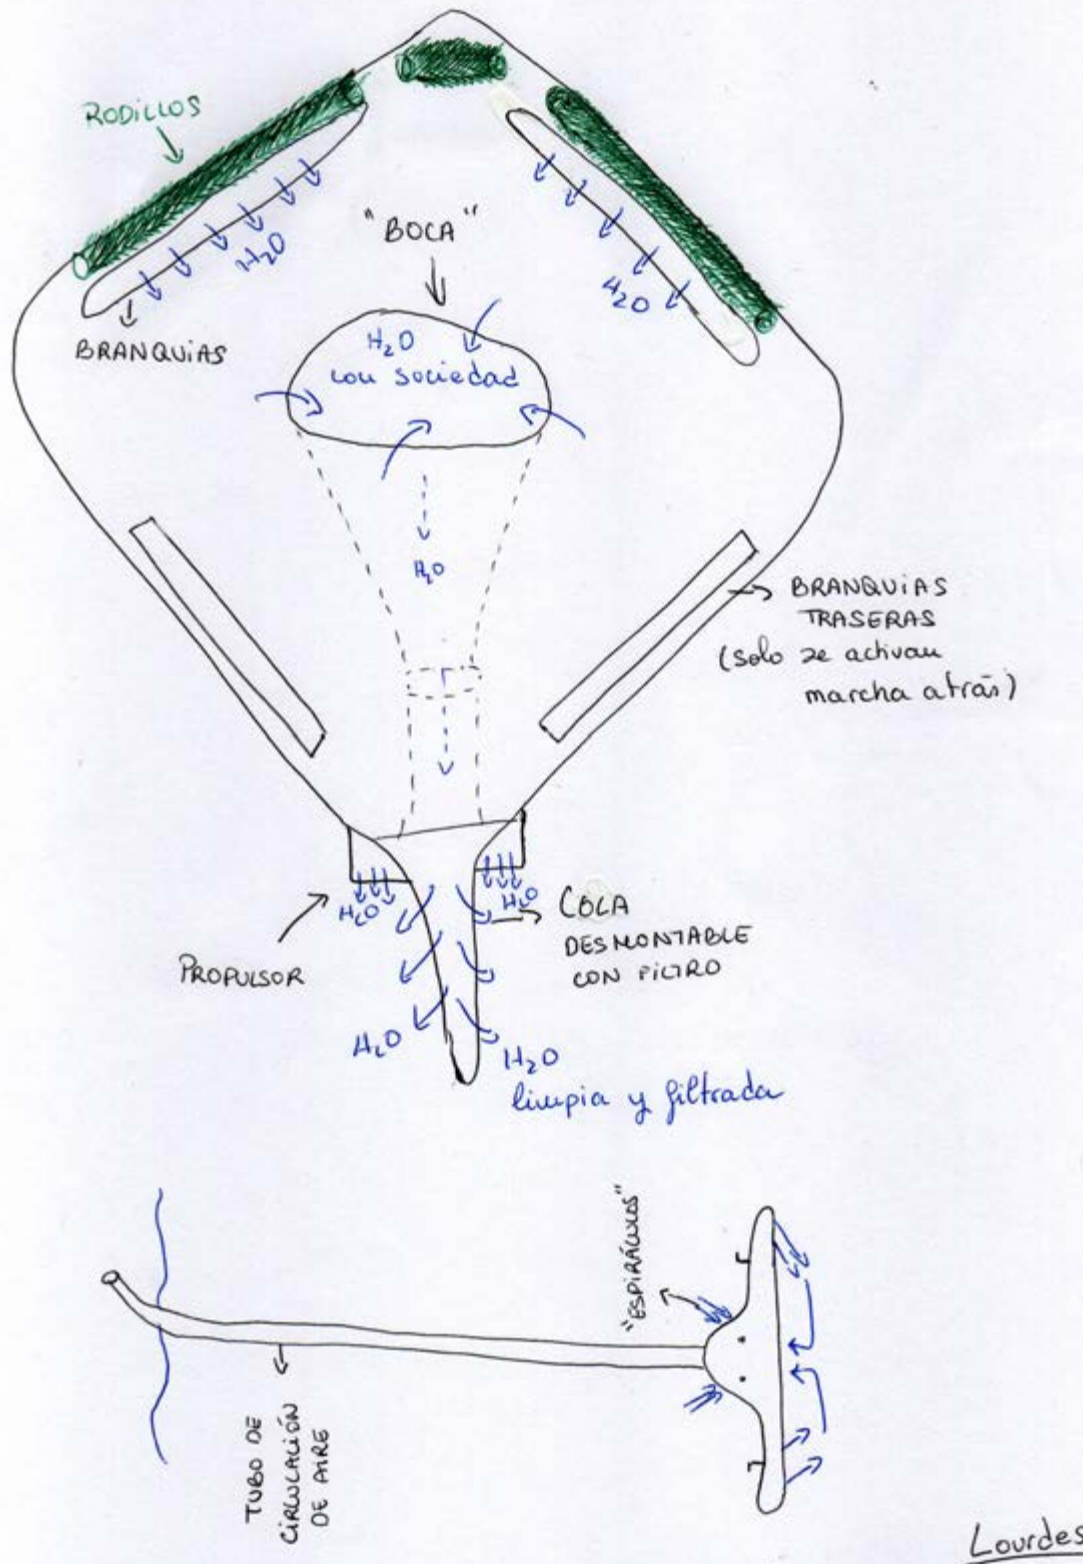 RODILLOS
H₂O
"BOCA"
H₂O
BRANQUIAS
H₂O
con sociedad
H₂O
BRANQUIAS
TRASERAS
(solo se activan
marcha atrás)
H₂O
H₂O
PROPULSOR
COLA
DESMONTABLE
CON FILTRO
H₂O
H₂O
limpia y filtrada
"ESPIRÁCULOS"
TUBO DE
CIRCULACIÓN
DE AIRE
Lourdes